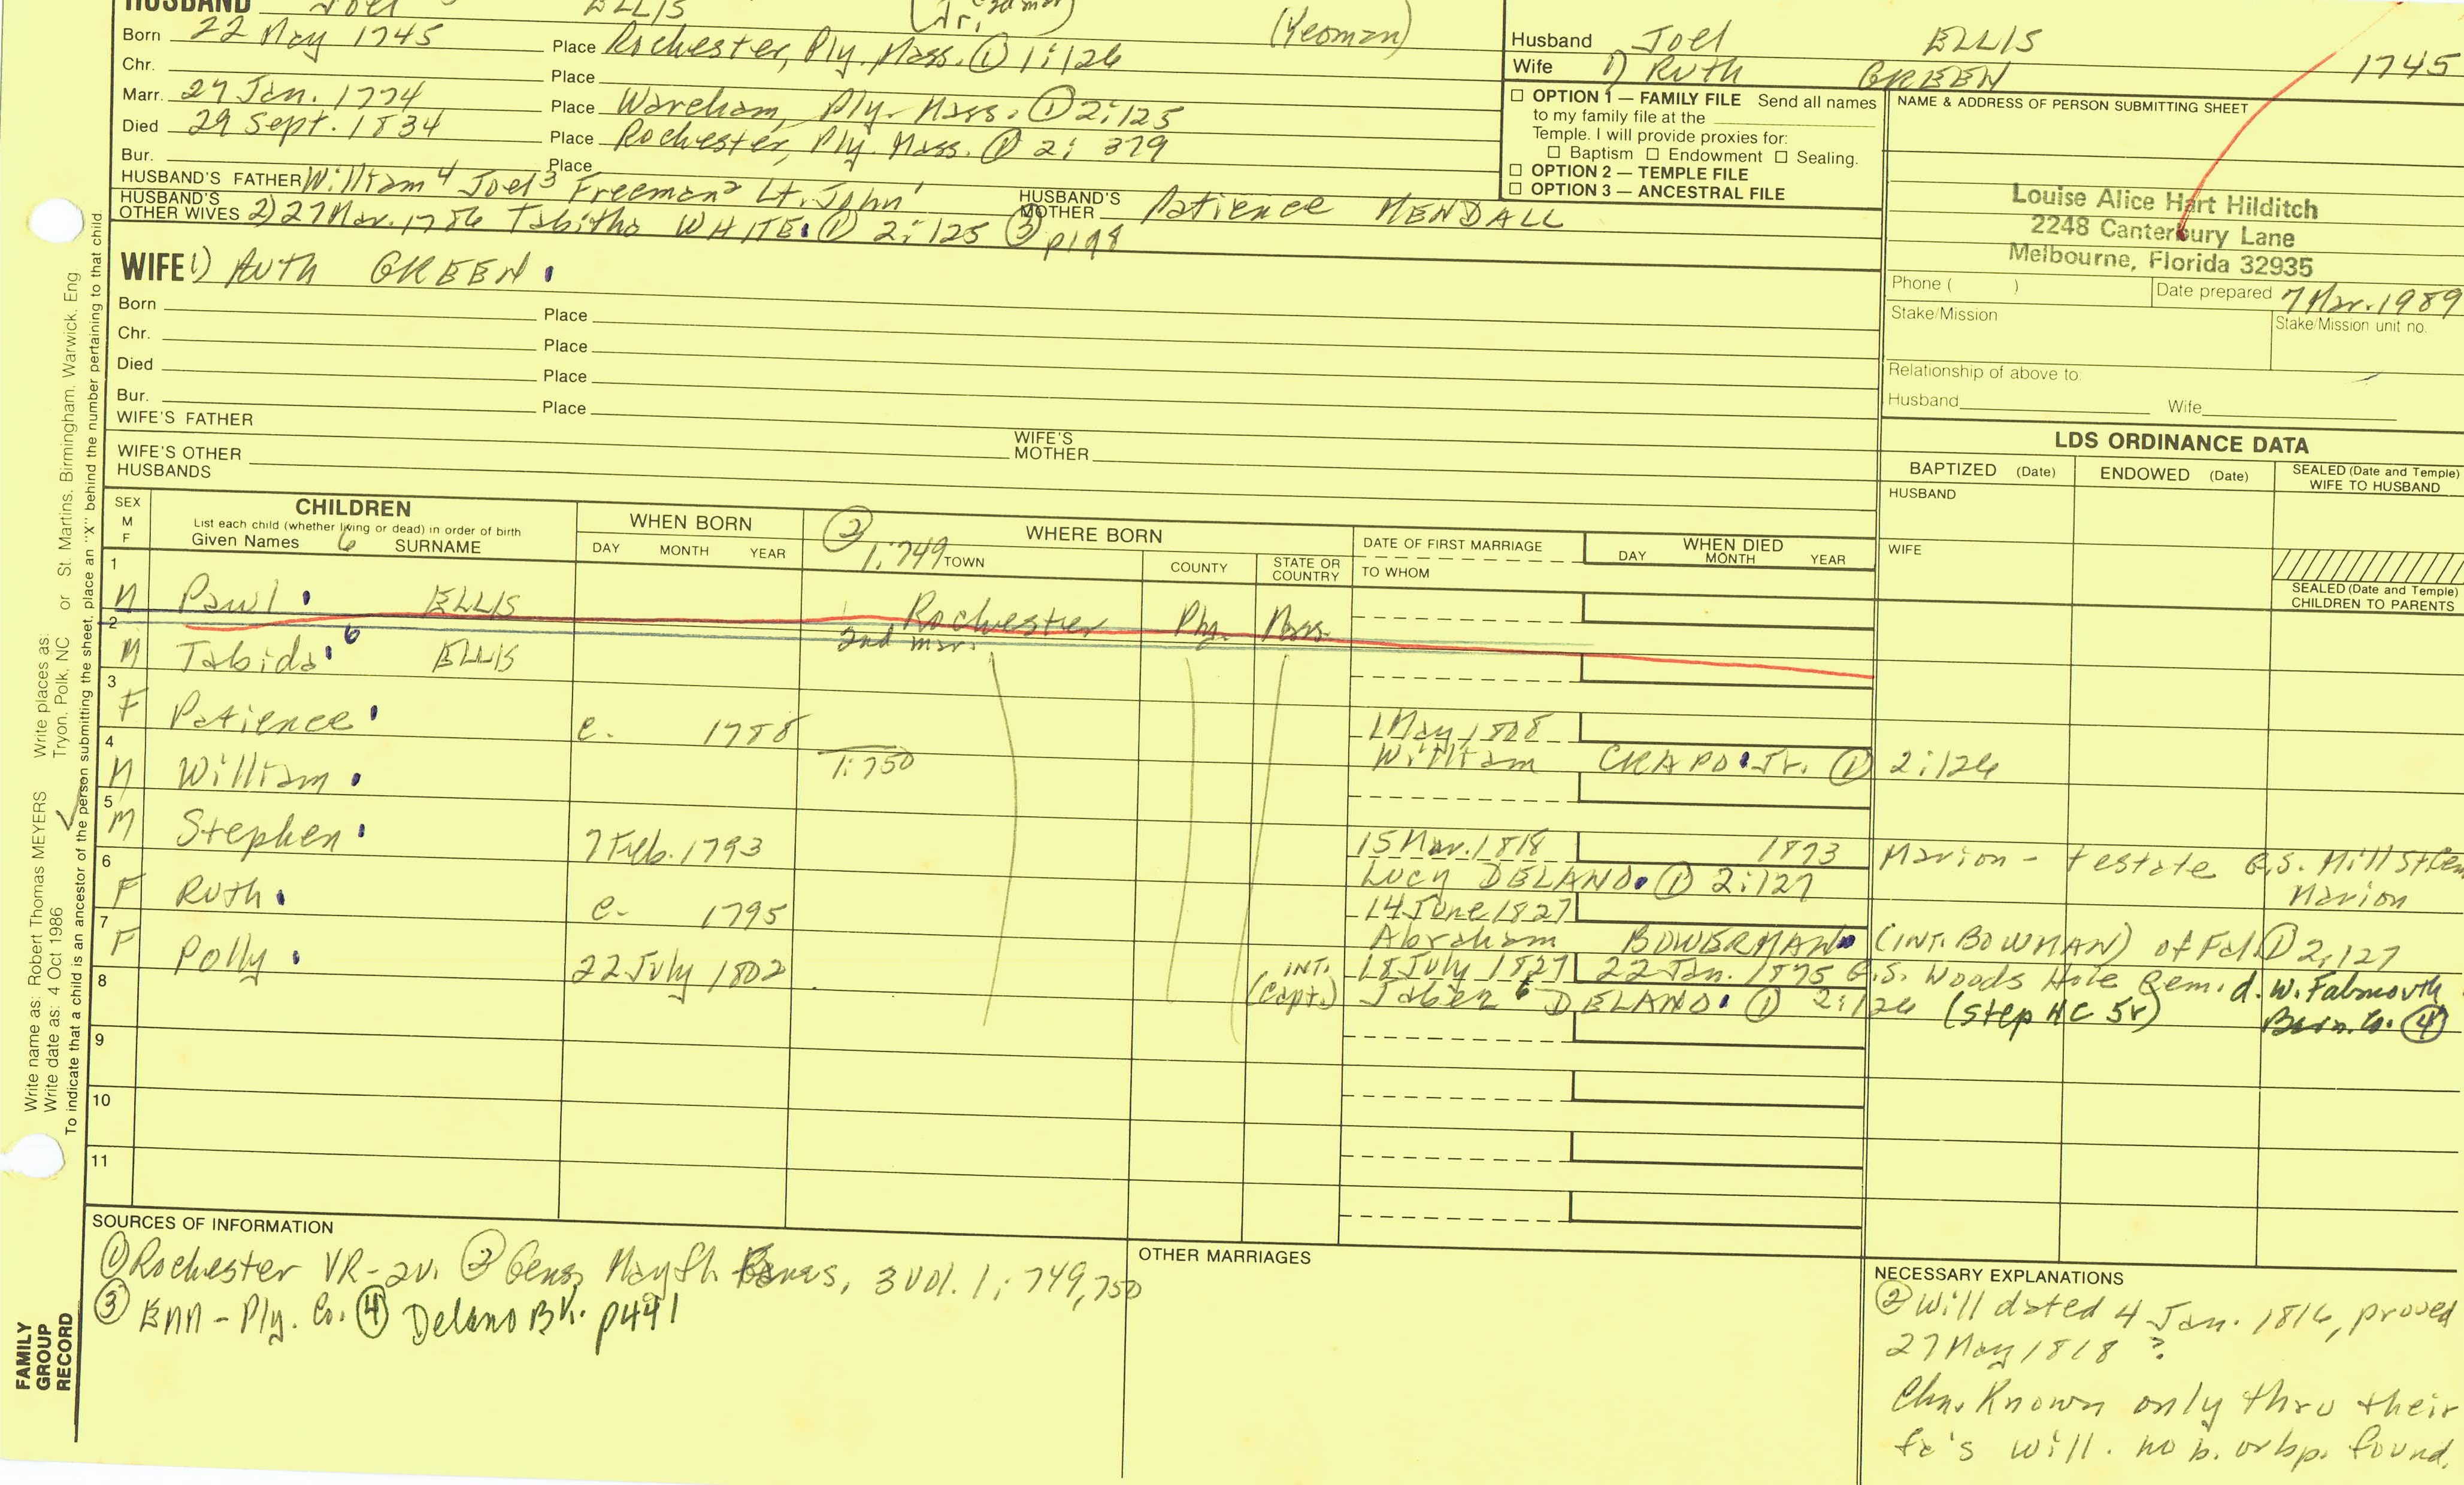 HUSBAND Joel ELLIS (Jr.) (Yeoman)
Born 22 May 1745 Place Rochester, Ply. Mass. ① 1:126
Chr. Place
Marr. 27 Jan. 1774 Place Wareham, Ply. Mass. ① 2:125
Died 29 Sept. 1834 Place Rochester, Ply. Mass. ① 2: 379
Bur. Place
HUSBAND'S FATHER William⁴ Joel³ Freeman² Lt. John¹ HUSBAND'S MOTHER Patience MENDALL
HUSBAND'S OTHER WIVES 2) 27 Mar. 1786 Tabitha WHITE. ① 2:125 ③ p198
WIFE 1) Ruth GREEN.
Born Place
Chr. Place
Died Place
Bur. Place
WIFE'S FATHER WIFE'S MOTHER
WIFE'S OTHER HUSBANDS
Husband Joel ELLIS 1745
Wife 1) Ruth GREEN
☐ OPTION 1 — FAMILY FILE Send all names
to my family file at the
Temple. I will provide proxies for:
☐ Baptism ☐ Endowment ☐ Sealing.
☐ OPTION 2 — TEMPLE FILE
☐ OPTION 3 — ANCESTRAL FILE
NAME & ADDRESS OF PERSON SUBMITTING SHEET
Louise Alice Hart Hilditch
2248 Canterbury Lane
Melbourne, Florida 32935
Phone ( ) Date prepared 7 Mar. 1989
Stake/Mission Stake/Mission unit no.
Relationship of above to:
Husband Wife
LDS ORDINANCE DATA
BAPTIZED (Date) ENDOWED (Date) SEALED (Date and Temple) WIFE TO HUSBAND
HUSBAND
WIFE
SEALED (Date and Temple) CHILDREN TO PARENTS
SEX M F
CHILDREN
List each child (whether living or dead) in order of birth
Given Names 6 SURNAME
WHEN BORN
DAY MONTH YEAR
② 1:749
WHERE BORN
TOWN COUNTY STATE OR COUNTRY
DATE OF FIRST MARRIAGE
TO WHOM
WHEN DIED
DAY MONTH YEAR
1 M Paul. ELLIS Rochester Ply. Mass.
2 M Tabida. 6 ELLIS 2nd mar.
3 F Patience. c. 1788 1 May 1808
William CRAPO. Jr. ① 2:126
4 M William. 1:750
5 M Stephen. 7 Feb. 1793 15 Mar. 1818 1873 Marion - testate G.S. Mill St Cem
Lucy DELANO. ① 2:127 Marion
6 F Ruth. c. 1795 14 June 1827
Abraham BOWERMAN. (INT. BOWMAN) of Fal. ① 2:127
7 F Polly. 22 July 1802 INT. 18 July 1827 22 Jan. 1875 G.S. Woods Hole Cem. d. W. Falmouth
(Capt.) Jabez 6 DELANO. ① 2:126 (Step HC 5r) Barn. Co. ④
8
9
10
11
SOURCES OF INFORMATION
① Rochester VR-2v. ② Gens. Mayfl. Fams, 3 vol. 1: 749, 750
③ EMM - Ply. Co. ④ Delano Bk. p441
OTHER MARRIAGES
NECESSARY EXPLANATIONS
② Will dated 4 Jan. 1816, proved
27 May 1818 ?
Chn. Known only thru their
fa's will. no b. or bp. found.
Write name as: Robert Thomas MEYERS Write places as: Tryon, Polk, NC or St. Martins, Birmingham, Warwick, Eng
Write date as: 4 Oct 1986
To indicate that a child is an ancestor of the person submitting the sheet, place an "X" behind the number pertaining to that child.
FAMILY
GROUP
RECORD